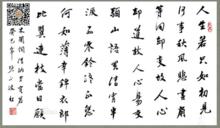 人生若只如初見
何事秋風悲畫扇
等閑變却故人心
却道故人心易變
驪山語罷清宵半
淚雨零鈴終不怨
何如薄幸錦衣郎
比翼連枝當日願